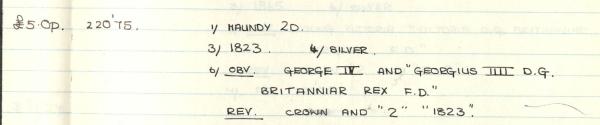 £5.0p. 220'75. 1/ MAUNDY 2D.
3/ 1823. 4/ SILVER.
6/ OBV. GEORGE IV AND "GEORGIUS IIII D.G.
BRITANNIAR REX F.D."
REV. CROWN AND "2" "1823".